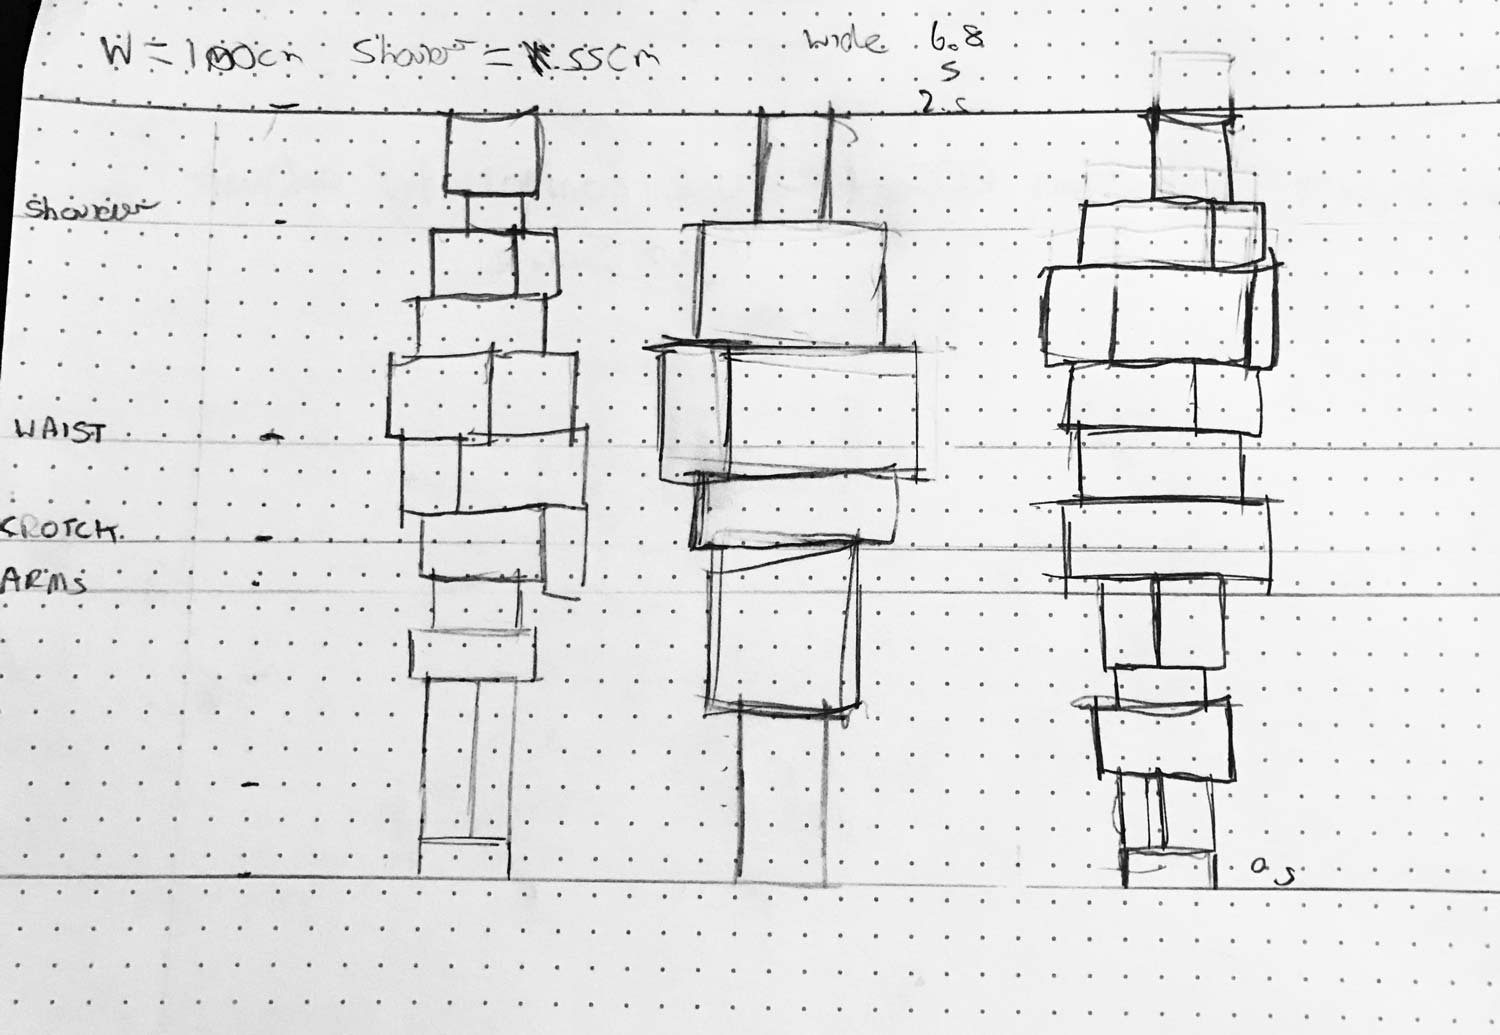 W = 100cm Shouler = 55cm
wide 6.8
5
2.5
Shoulder
WAIST
CROTCH.
ARMS
0.5